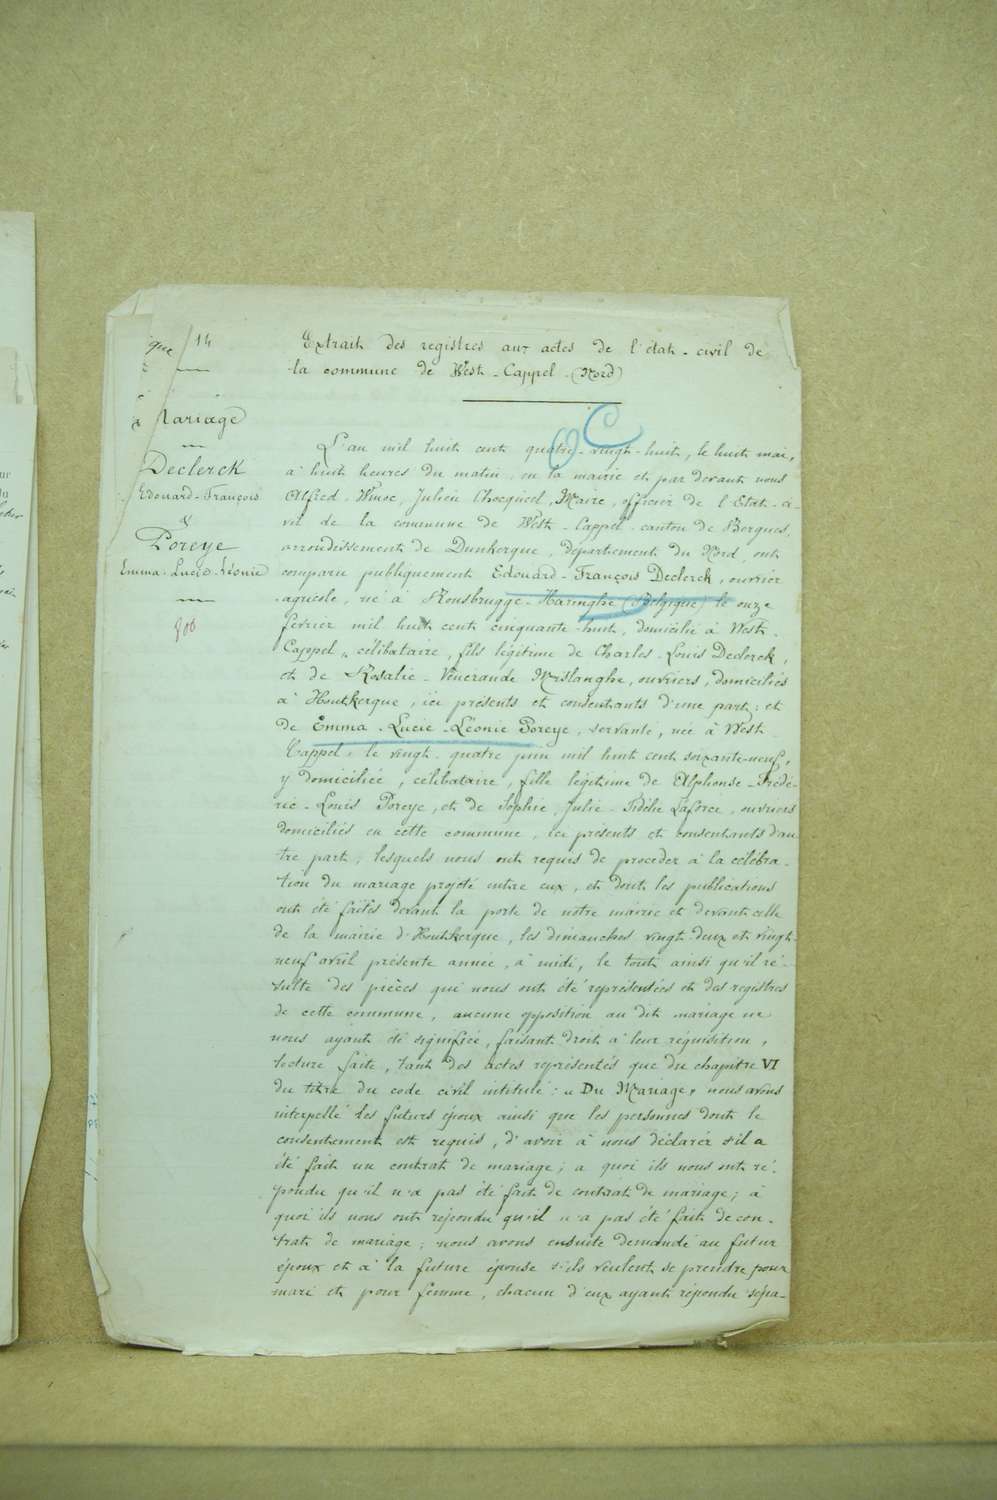 que / 14
Extrait des registres aux actes de l'état-civil de
la commune de West-Cappel (Nord)
Mariage
Declerck
Edouard-François
&
Poreye
Emma-Lucie-Léonie
L'an mil huit cent quatre-vingt-huit, le huit mai,
à huit heures du matin, en la mairie et par devant nous
Alfred, Winoc, Julien Chocqueel, Maire, officier de l'Etat-ci-
vil de la commune de West-Cappel, canton de Bergues,
arrondissement de Dunkerque, département du Nord, ont
comparu publiquement Edouard-François Declerck, ouvrier
agricole, né à Rousbrugge-Haringhe (Belgique) le onze
février mil huit cent cinquante-huit, domicilié à West-
Cappel, célibataire, fils légitime de Charles-Louis Declerck,
et de Rosalie-Vénerande Merlanghe, ouvriers, domiciliés
à Houtkerque, ici présents et consentants d'une part; et
de Emma-Lucie-Léonie Poreye, servante, née à West-
Cappel, le vingt-quatre juin mil huit cent soixante-neuf,
y domiciliée, célibataire, fille légitime de Alphonse-Frédé-
ric-Louis Poreye, et de Sophie, Julie-Fidélie Laforce, ouvriers
domiciliés en cette commune, ici présents et consentants d'au
tre part; lesquels nous ont requis de procéder à la célébra-
tion du mariage projeté entre eux, et dont les publications
ont été faites devant la porte de notre mairie et devant celle
de la mairie d'Houtkerque, les dimanches vingt-deux et vingt-
neuf avril présente année, à midi, le tout ainsi qu'il ré-
sulte des pièces qui nous ont été représentées et des registres
de cette commune, aucune opposition au dit mariage ne
nous ayant été signifiée, faisant droit à leur réquisition,
lecture faite, tant des actes représentés que du chapitre VI
du titre du code civil intitulé: "Du Mariage" nous avons
interpellé les futurs époux ainsi que les personnes dont le
consentement est requis, d'avoir à nous déclarer s'il a
été fait un contrat de mariage; a quoi ils nous ont ré-
pondu qu'il n'a pas été fait de contrat de mariage; à
quoi ils nous ont répondu qu'il n'a pas été fait de con-
trat de mariage; nous avons ensuite demandé au futur
époux et à la future épouse s'ils veulent se prendre pour
mari et pour femme, chacun d'eux ayant répondu sépa-